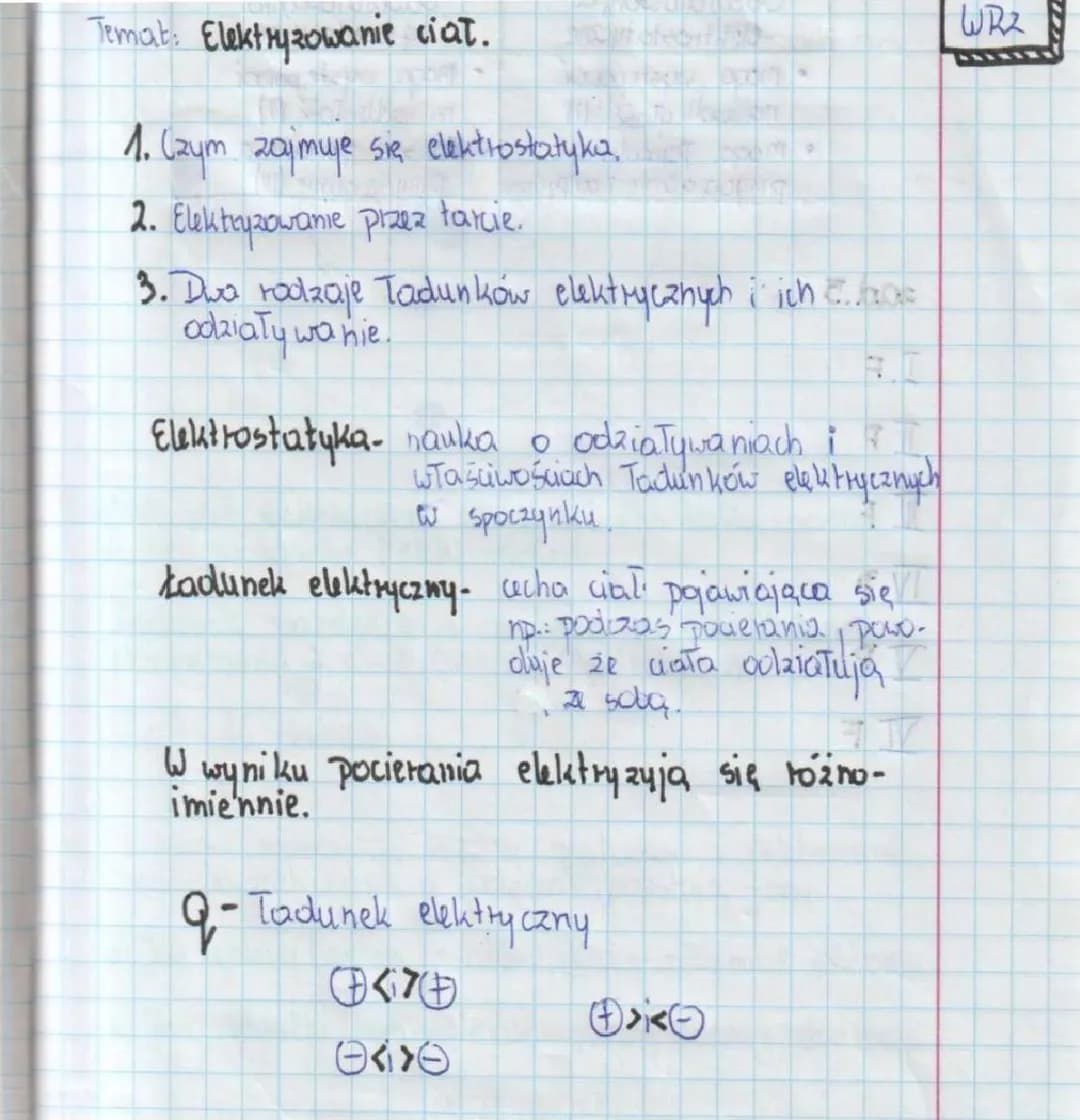 Temat: Elektryzowanie ciał.
WRZ
1. Czym zajmuje się elektrostatyka.
2. Elektryzowanie przez tarcie.
3. Dwa rodzaje ładunków elektrycznych i ich
odziaływanie.
Elektrostatyka- nauka o odziaływaniach i
właściwościach ładunków elektrycznych
w spoczynku.
Ładunek elektryczny- cecha ciał pojawiająca się
np.: podczas pocierania, powo-
duje że ciała odziałują
ze sobą.
W wyniku pocierania elektryzyją się różno-
imiennie.
q - ładunek elektryczny
⊕<i>⊕
⊕>i<⊖
⊖<i>⊖